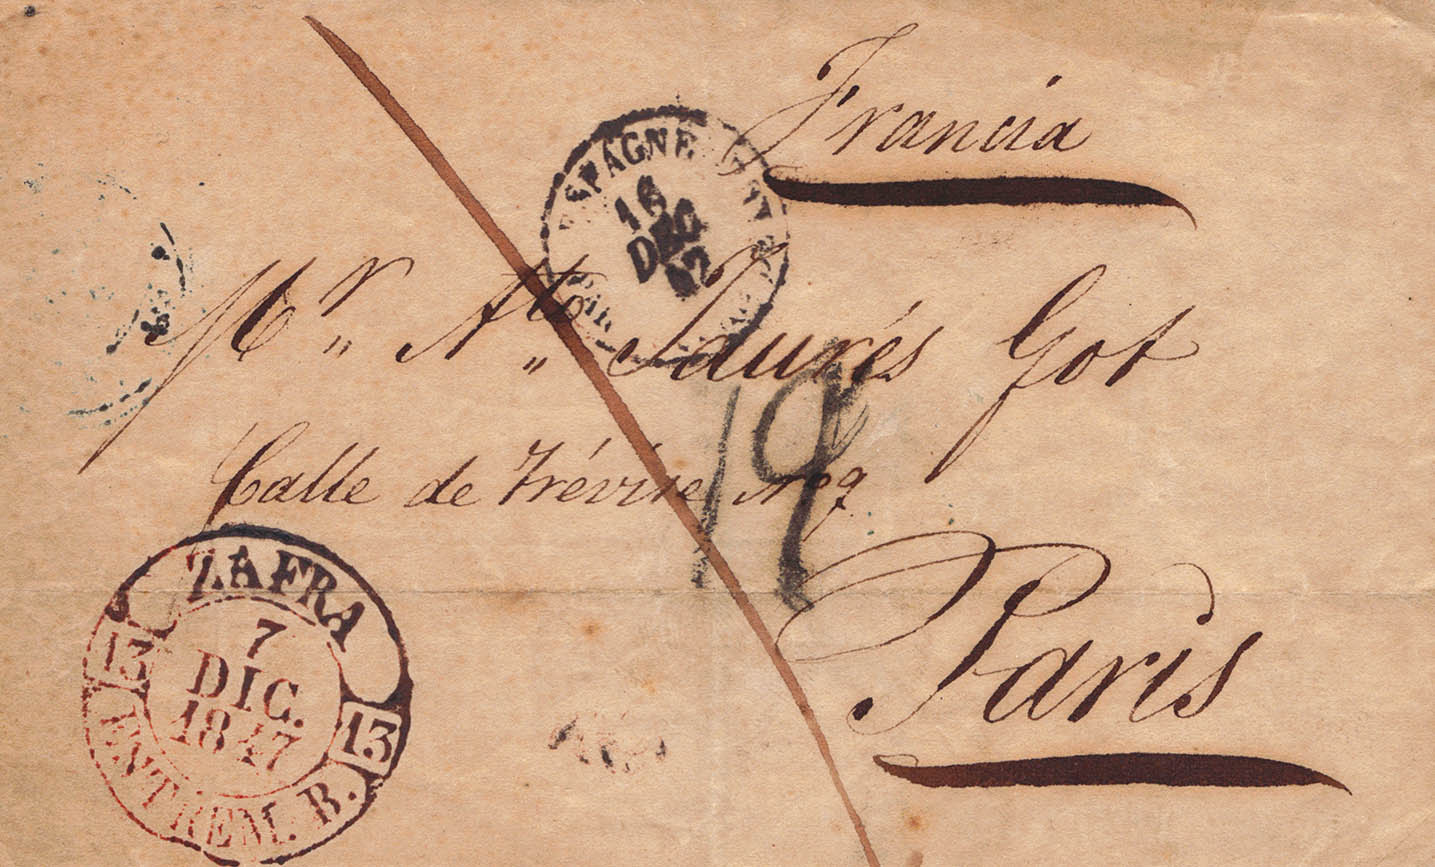 Francia
ESPAGNE
16
DEC
Mr. Ato. Jaurés Got
Calle de Trévise No 9
19
Paris
ZAFRA
7
DIC.
1847
13
13
ESTREM. B.